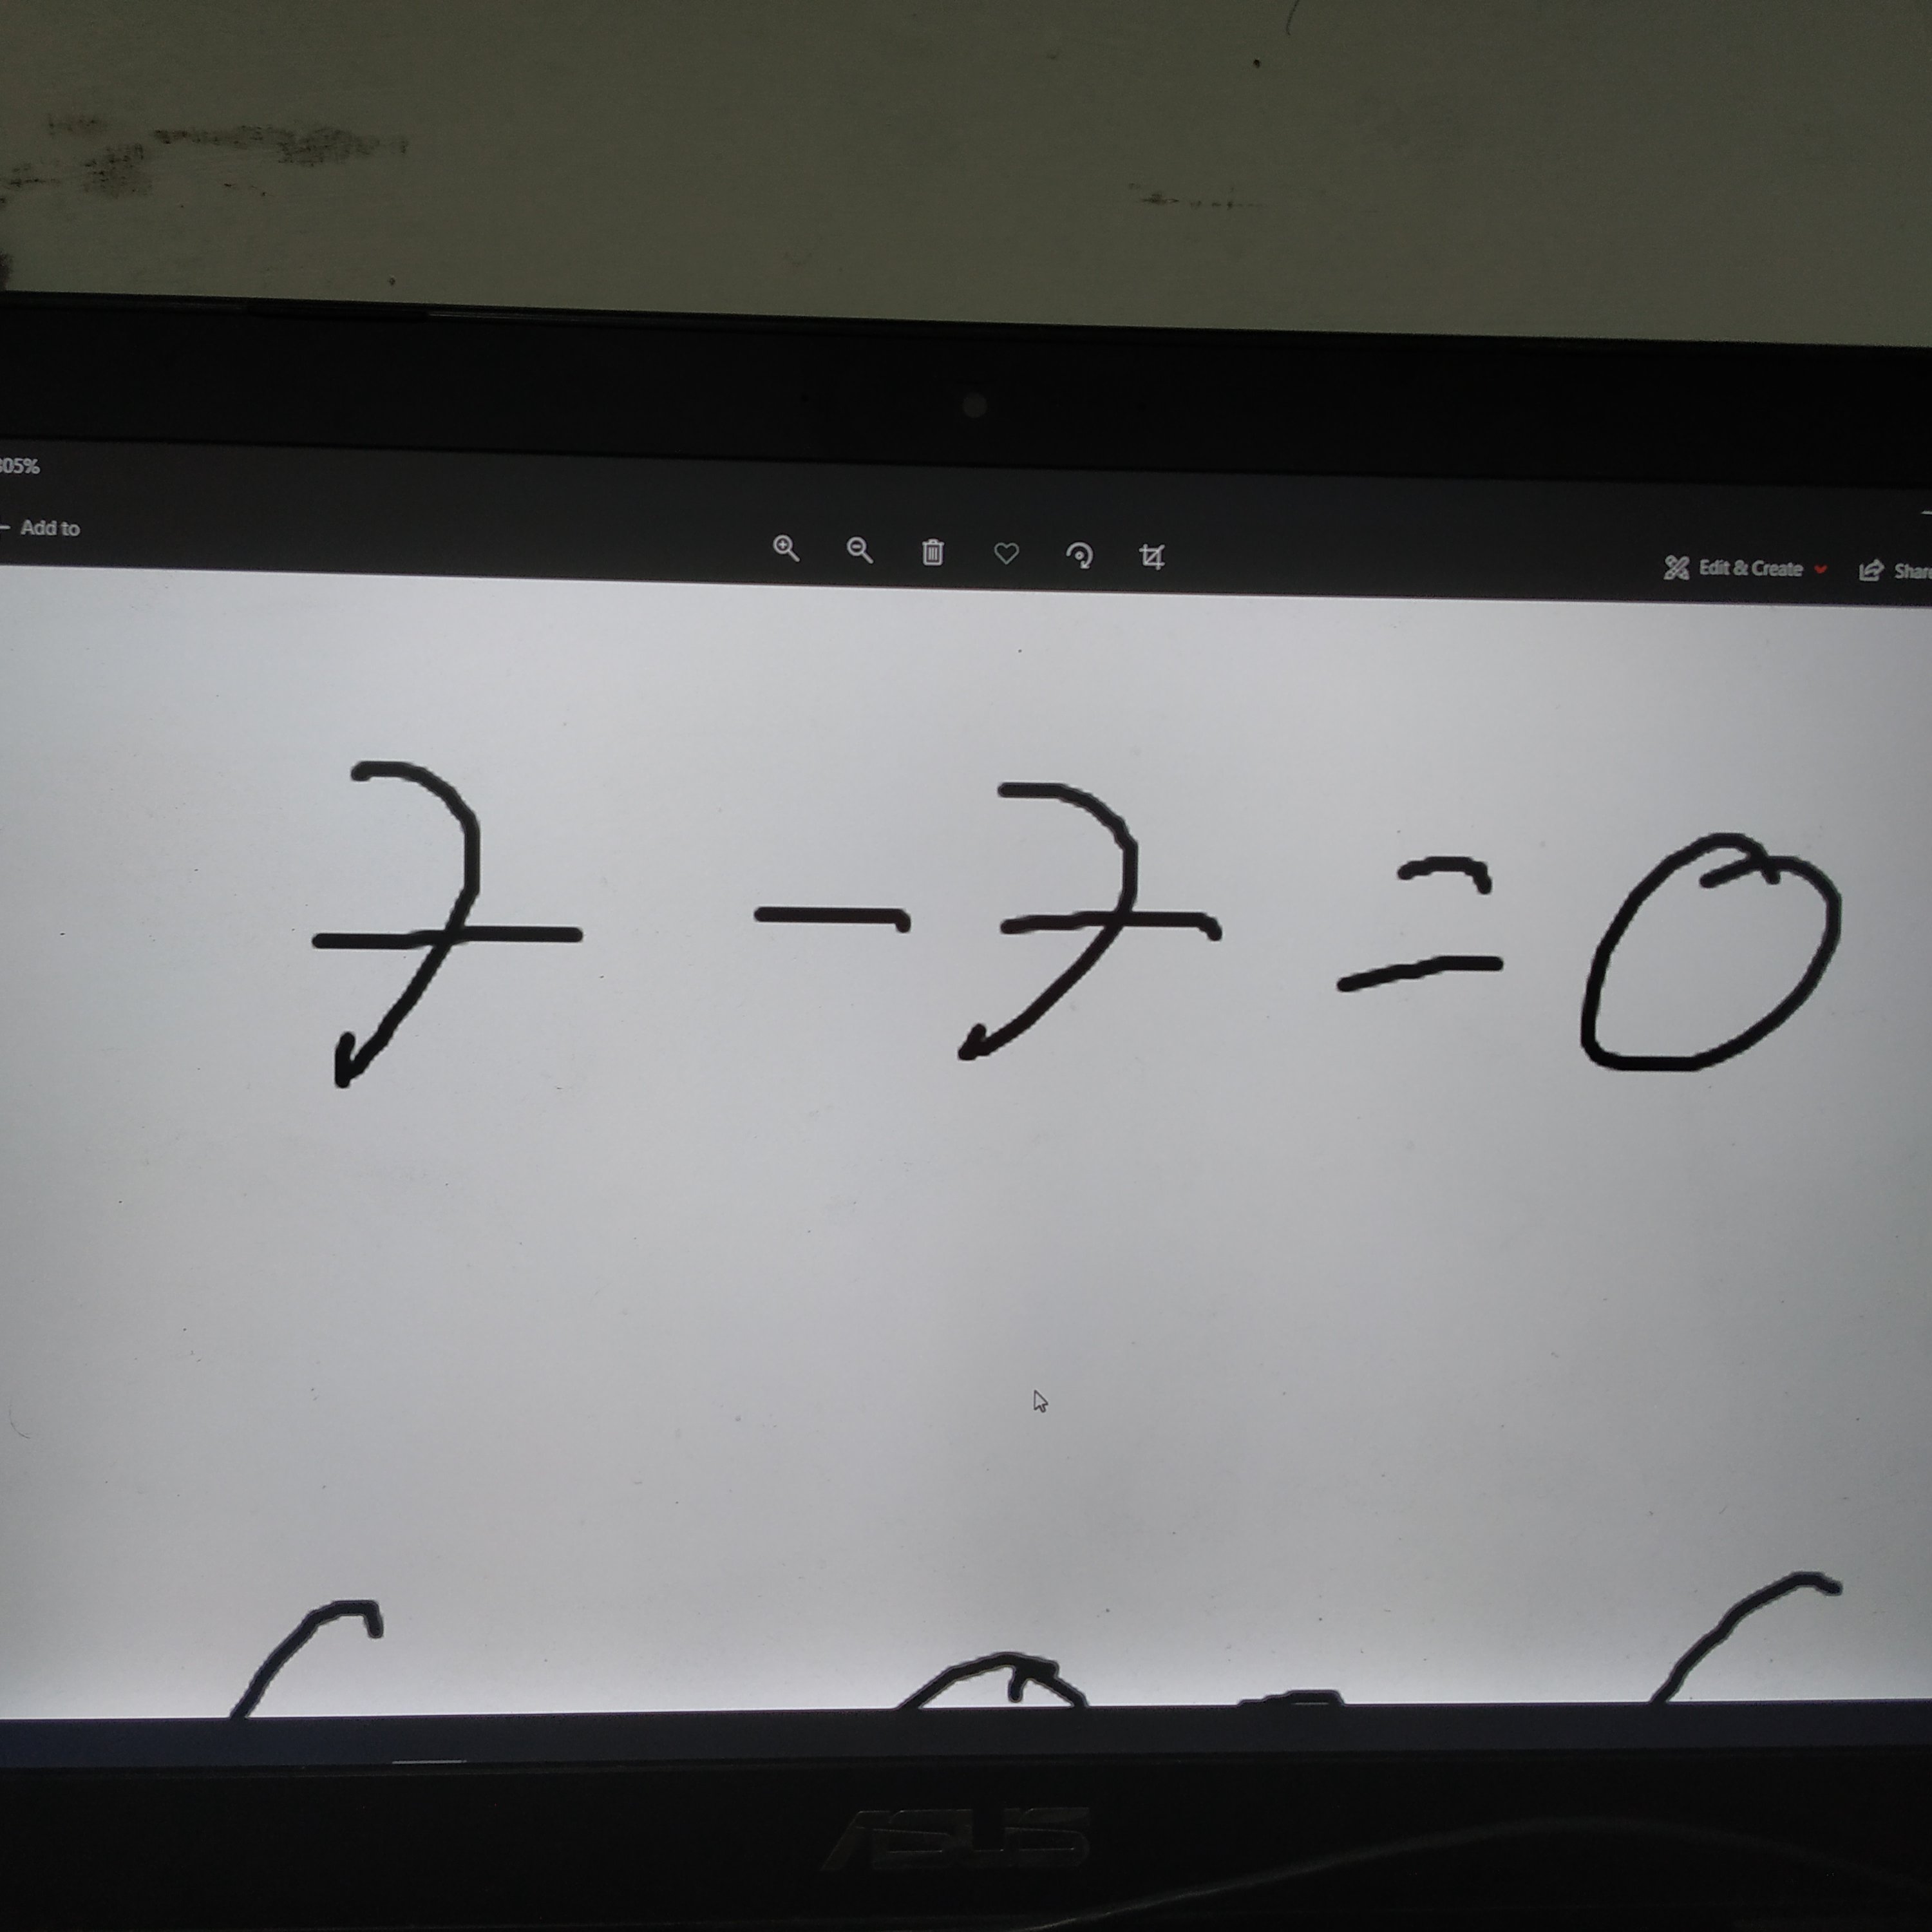 305%
Add to
Edit & Create
Share
7 - 7 = 0
ASUS